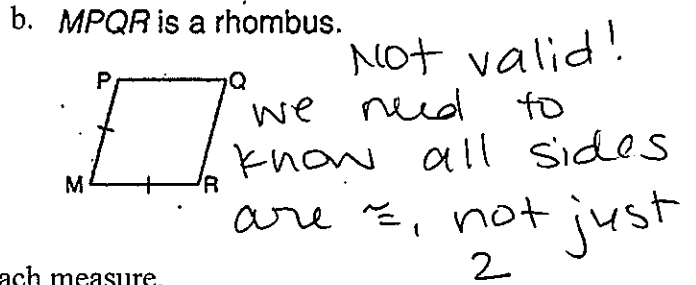 b. MPQR is a rhombus.
Not valid!
P
Q
we need to
know all sides
M
R
are ≅, not just
2
ach measure.